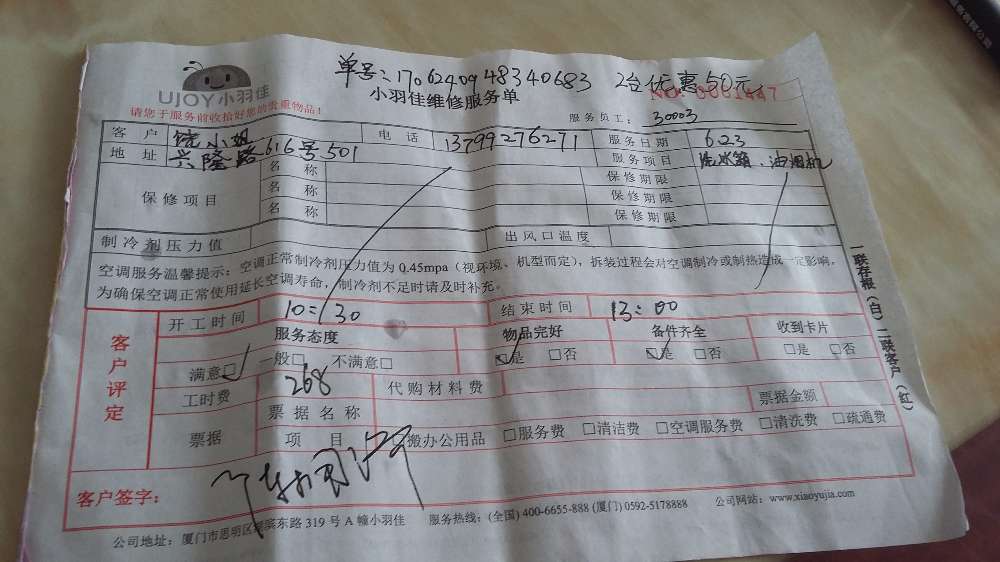 单号:170624094834068 3 2台优惠50元
UJOY小羽佳
小羽佳维修服务单
NO 0001447
请您于服务前收拾好您的贵重物品!
服务员工: 30003
客户 饶小姐 电话 13799276271 服务日期 6.23
地址 兴隆路616号501 服务项目 洗冰箱、油烟机
保修项目 名称 保修期限
名称 保修期限
名称 保修期限
制冷剂压力值 出风口温度
空调服务温馨提示:空调正常制冷剂压力值为0.45mpa(视环境、机型而定),拆装过程会对空调制冷或制热造成一定影响,
为确保空调正常使用延长空调寿命,制冷剂不足时请及时补充。
客户评定
开工时间 10:30 结束时间 13:00
服务态度 物品完好 备件齐全 收到卡片
满意□ 一般□ 不满意□ □是 □否 □是 □否 □是 □否
工时费 268 代购材料费
票据 票据名称 票据金额
项目 □搬办公用品 □服务费 □清洁费 □空调服务费 □清洗费 □疏通费
客户签字:
公司地址:厦门市思明区湖滨东路319号A幢小羽佳 服务热线:(全国)400-6655-888 (厦门)0592-5178888 公司网站:www.xiaoyujia.com
一联存根(白)二联客户(红)